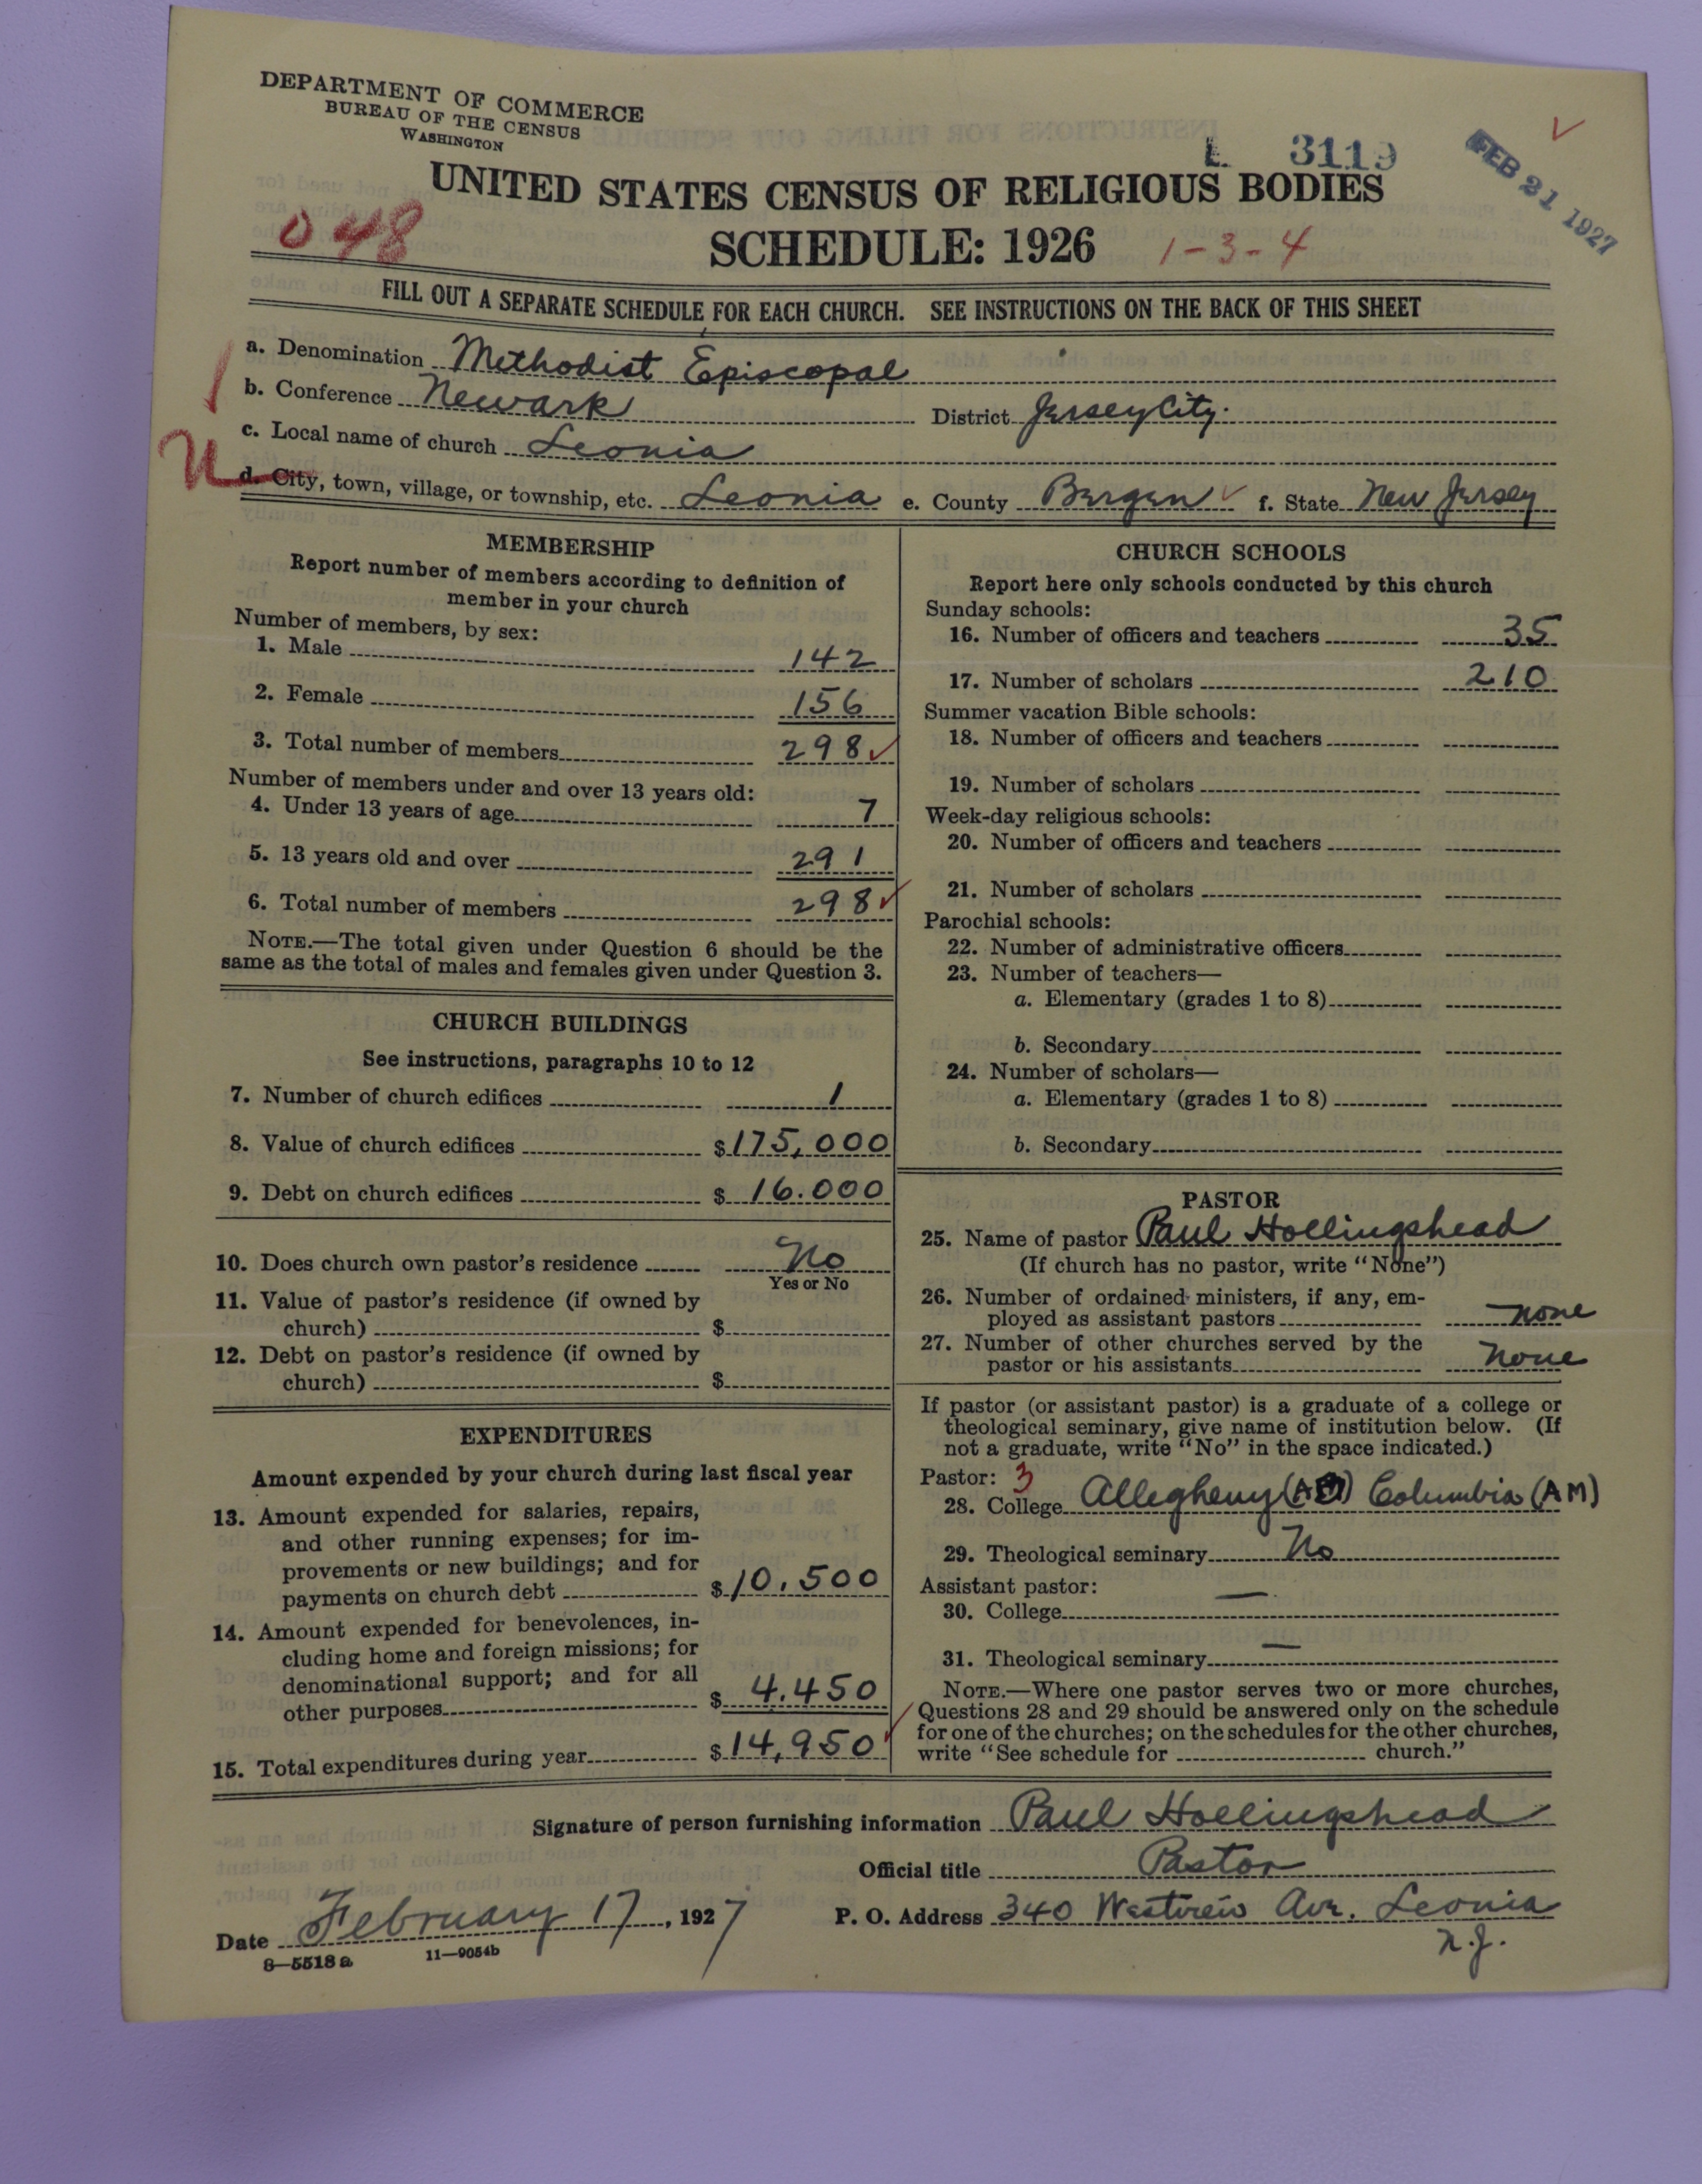 DEPARTMENT OF COMMERCE
BUREAU OF THE CENSUS
WASHINGTON
3119
FEB 21 1927
UNITED STATES CENSUS OF RELIGIOUS BODIES
048
SCHEDULE: 1926 1-3-4
FILL OUT A SEPARATE SCHEDULE FOR EACH CHURCH. SEE INSTRUCTIONS ON THE BACK OF THIS SHEET
a. Denomination Methodist Episcopal
b. Conference Newark District Jersey City.
c. Local name of church Leonia
d. City, town, village, or township, etc. Leonia e. County Bergen f. State New Jersey
MEMBERSHIP
Report number of members according to definition of
member in your church
Number of members, by sex:
1. Male 142
2. Female 156
3. Total number of members 298
Number of members under and over 13 years old:
4. Under 13 years of age 7
5. 13 years old and over 291
6. Total number of members 298
NOTE.—The total given under Question 6 should be the
same as the total of males and females given under Question 3.
CHURCH BUILDINGS
See instructions, paragraphs 10 to 12
7. Number of church edifices 1
8. Value of church edifices $175,000
9. Debt on church edifices $16.000
10. Does church own pastor's residence No
Yes or No
11. Value of pastor's residence (if owned by
church) $
12. Debt on pastor's residence (if owned by
church) $
EXPENDITURES
Amount expended by your church during last fiscal year
13. Amount expended for salaries, repairs,
and other running expenses; for im-
provements or new buildings; and for
payments on church debt $10.500
14. Amount expended for benevolences, in-
cluding home and foreign missions; for
denominational support; and for all
other purposes $4.450
15. Total expenditures during year $14,950
CHURCH SCHOOLS
Report here only schools conducted by this church
Sunday schools:
16. Number of officers and teachers 35
17. Number of scholars 210
Summer vacation Bible schools:
18. Number of officers and teachers
19. Number of scholars
Week-day religious schools:
20. Number of officers and teachers
21. Number of scholars
Parochial schools:
22. Number of administrative officers
23. Number of teachers—
a. Elementary (grades 1 to 8)
b. Secondary
24. Number of scholars—
a. Elementary (grades 1 to 8)
b. Secondary
PASTOR
25. Name of pastor Paul Hollingshead
(If church has no pastor, write "None")
26. Number of ordained ministers, if any, em-
ployed as assistant pastors none
27. Number of other churches served by the
pastor or his assistants none
If pastor (or assistant pastor) is a graduate of a college or
theological seminary, give name of institution below. (If
not a graduate, write "No" in the space indicated.)
Pastor: 3
28. College Allegheny Columbia (AM)
29. Theological seminary No
Assistant pastor:
30. College —
31. Theological seminary —
NOTE.—Where one pastor serves two or more churches,
Questions 28 and 29 should be answered only on the schedule
for one of the churches; on the schedules for the other churches,
write "See schedule for church."
Signature of person furnishing information Paul Hollingshead
Official title Pastor
Date February 17, 1927 P. O. Address 340 Westview Ave. Leonia
N.J.
8—5518 a 11—9054b